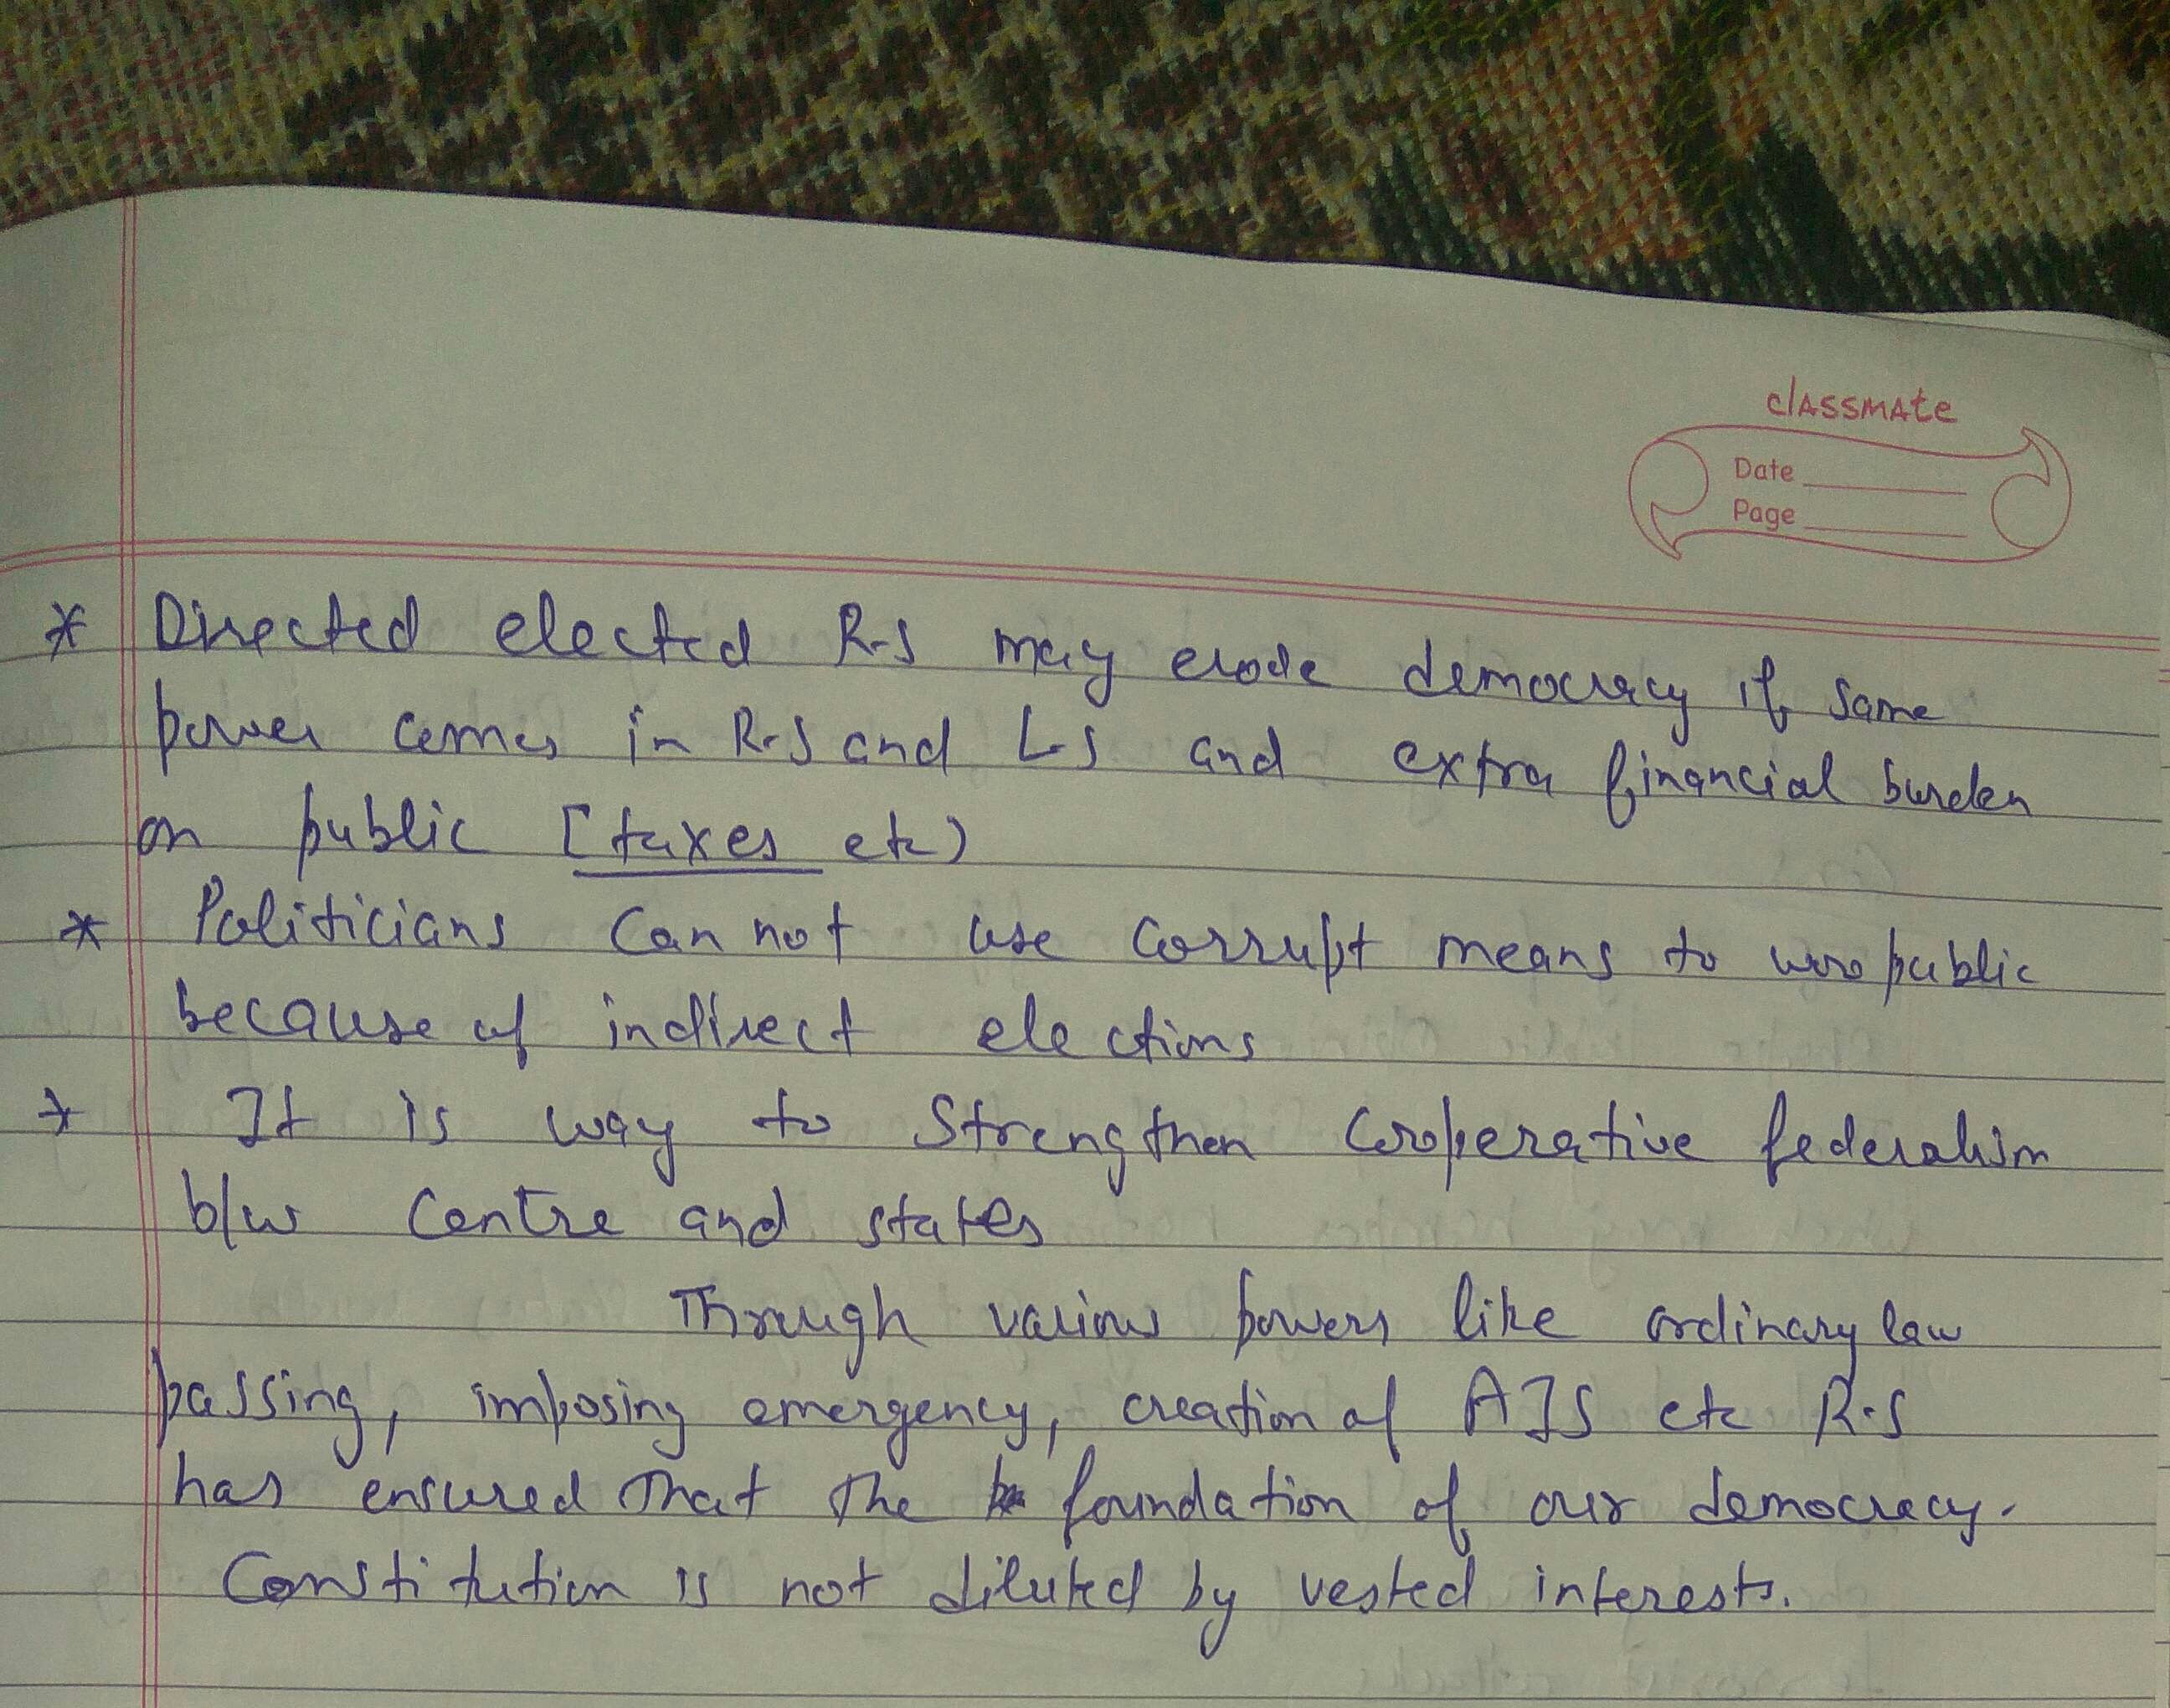 classmate
Date
Page
* Directed elected R.S may erode democracy if same
power comes in R.S and LS and extra financial burden
on public [taxes etc)
* Politicians can not use corrupt means to woo public
because of indirect elections
* It is way to strengthen cooperative federalism
b/w Centre and states
Through various powers like ordinary law
passing, imposing emergency, creation of AIS etc R.S
has ensured that the foundation of our democracy.
Constitution is not diluted by vested interests.